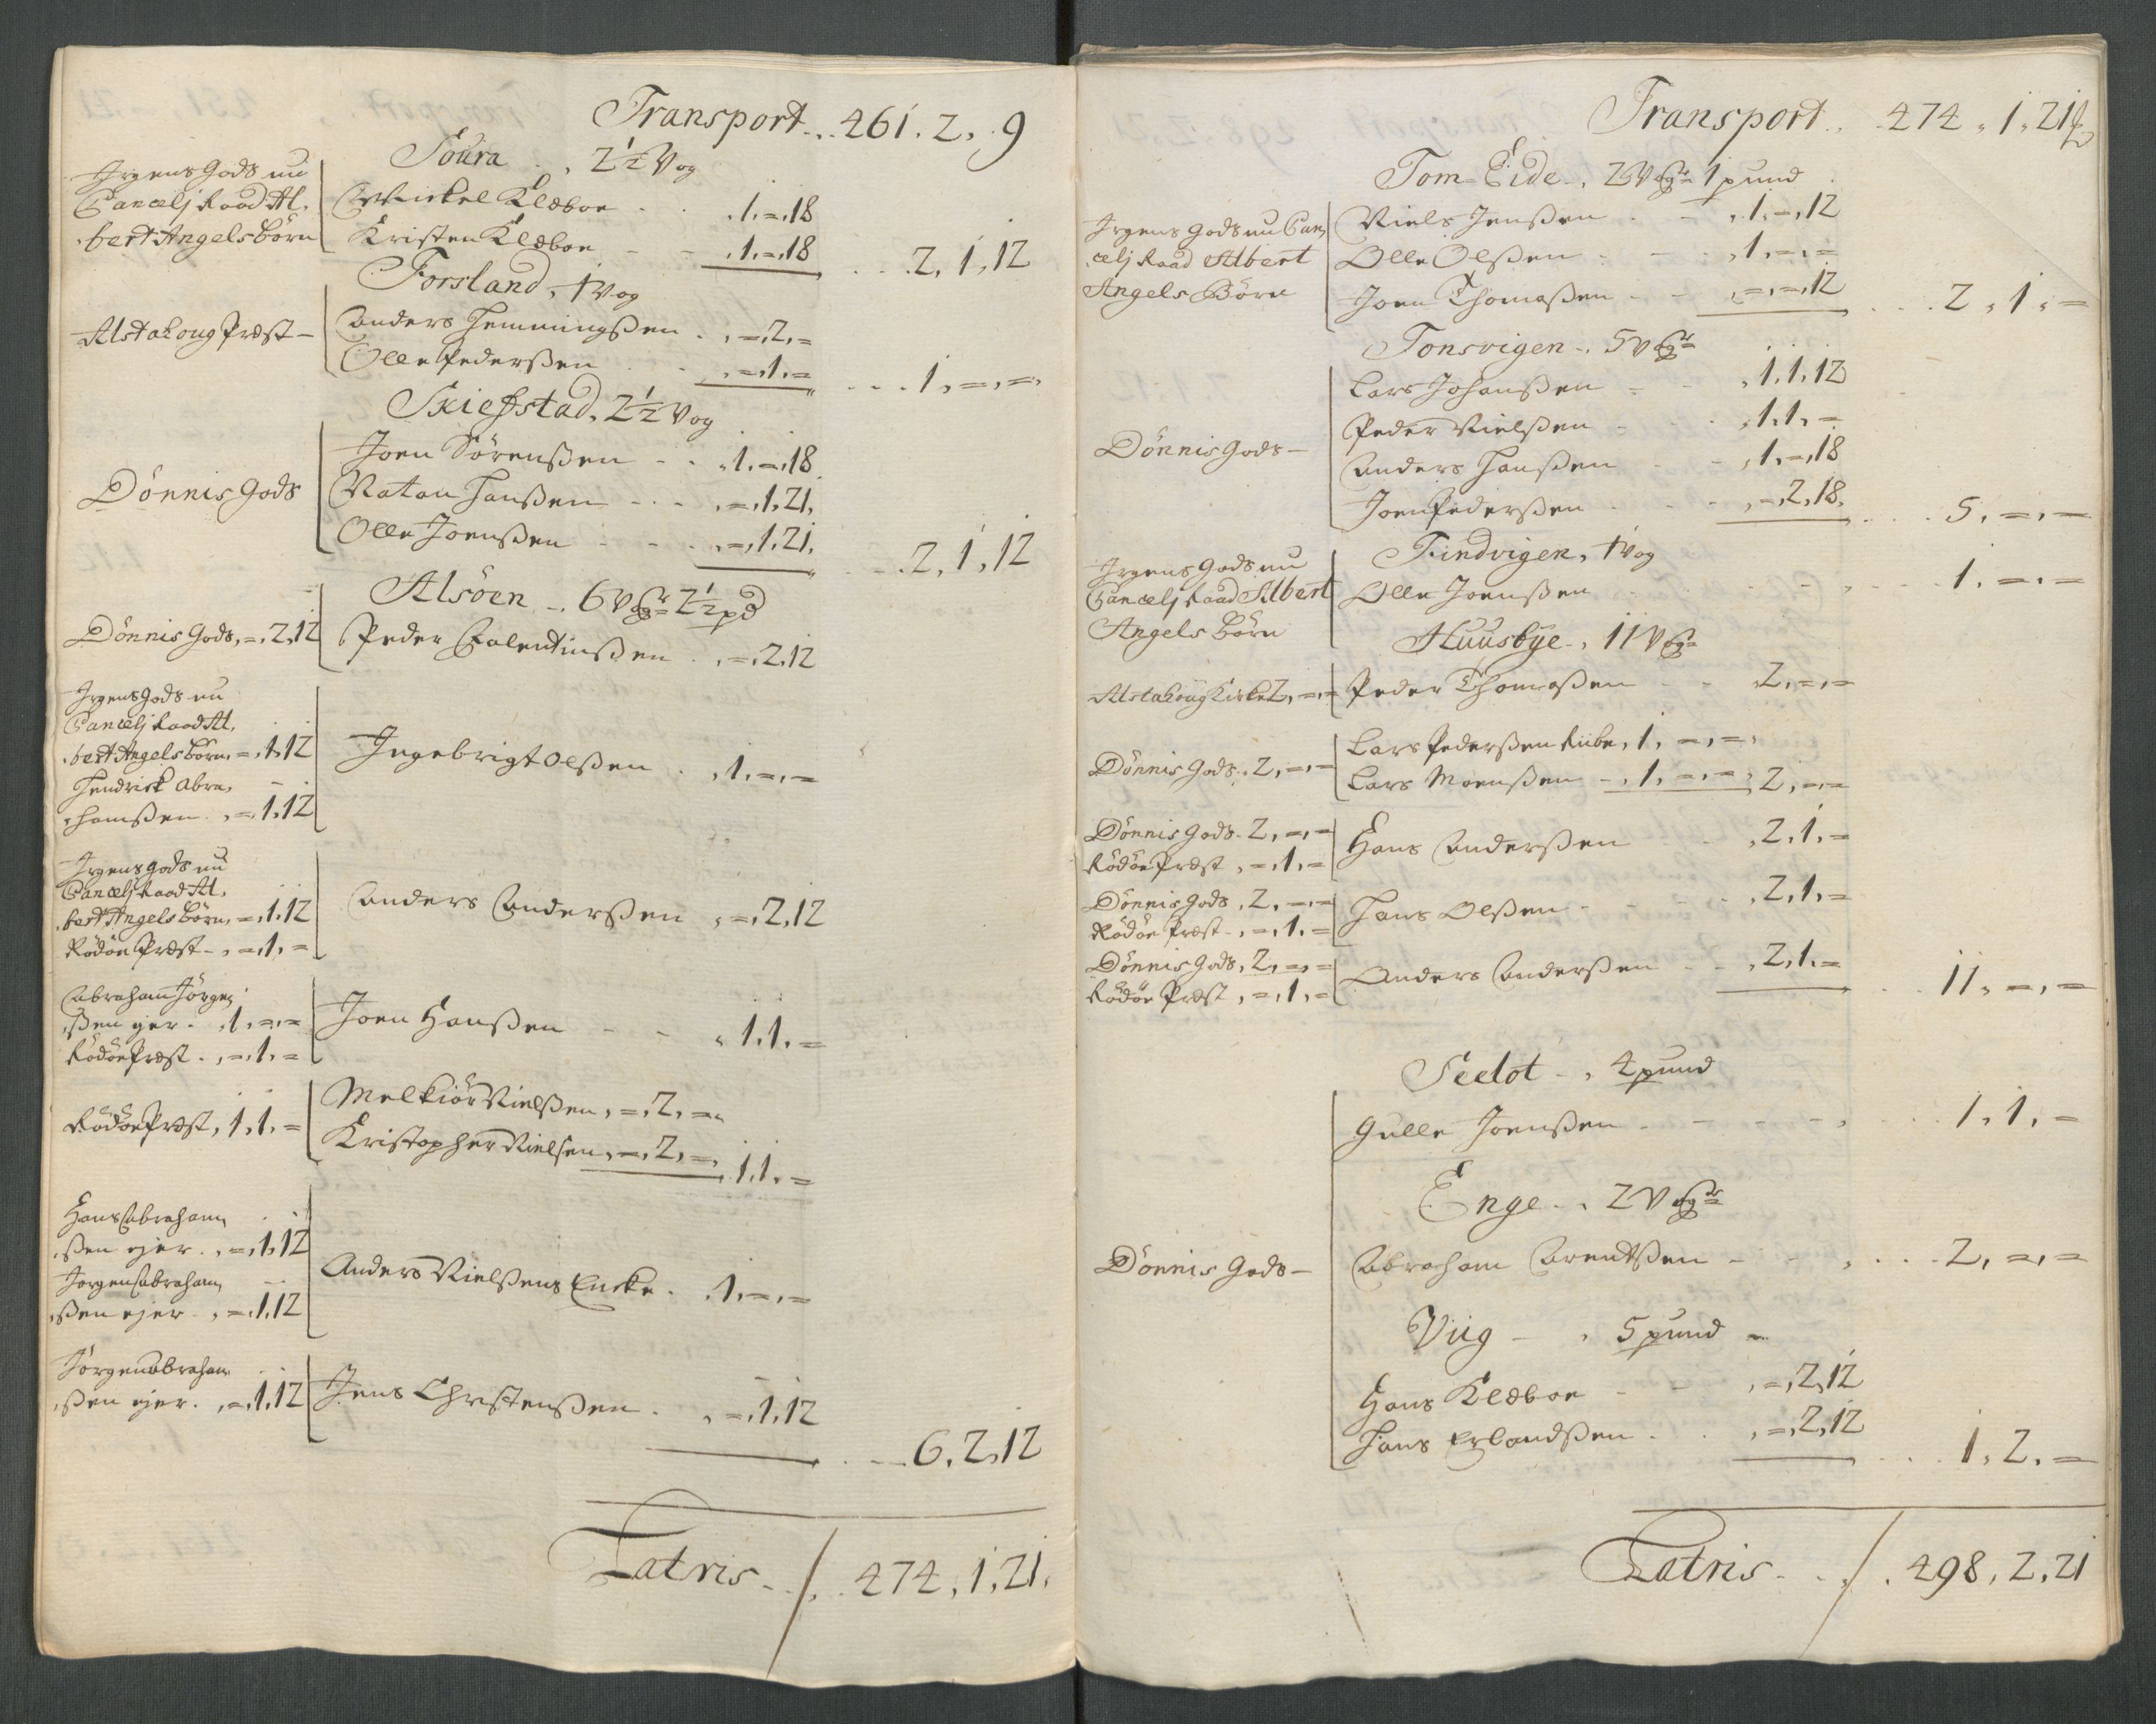 Transport . . 461 . 2 . 9
Soura . , 2½ Vog
Irgens Gods nu
Cancelj Raad Al,
,bert Angels Börn
Mickel Klæboe . . . 1 . = . 18
Kristen Klæboe - - . 1 . = . 18 . . . 2 , 1 , 12
Forsland , 1 Vog
Alstahoug Præst -
Anders Hemmingßen . , = , 2 , =
Olle Pederßen . . , = , 1 , = . . . 1 , = , =
Skiefstad , 2½ Vog
Dönnis Gods
Joen Sörenßen - . , 1 , = , 18
Natan Hanßen - . - , = , 1 , 21 ,
Olle Joenßen - - , = , 1 , 21 , . . . 2 , 1 , 12
Alsöen - . 6 Vogr 2½ pd
Dönnis Gods , = , 2 , 12 Peder Falentinßen . , = , 2 , 12
Irgens Gods nu
Cancelj Raad Al,
,bert Angels Börn , = , 1 , 12
Hendrick Abra,
,hamßen . , = , 1 , 12
Ingebrigt Olßen . , 1 , = , =
Irgens Gods nu
Cancelj Raad Al,
,bert Angels Börn , = , 1 , 12
Rödöe Præst - , = , 1 , =
Anders Anderßen , = , 2 , 12
Abraham Jörgen
,ßen ejer . , 1 , = , =
Rödöe Præst . , = , 1 , =
Joen Hanßen - - , 1 , 1 , =
Rödöe Præst , 1 , 1 , =
Melkiör Nielßen , = , 2 , =
Kristopher Nielsen , = , 2 , = , 1 , 1 , =
Hans Abraham
,ßen ejer . , = , 1 , 12
Jørgen Abraham
,ßen ejer . , = , 1 , 12
Anders Nielßens Encke . , 1 , = , =
Jörgen Abraham
,ßen ejer . , = , 1 , 12
Jens Christenßen . , = , 1 , 12
. . 6 , 2 , 12
Latris - . / . . 474 , 1 , 21 .
Transport . . 474 , 1 , 21
Tom Eide . , 2 Vogr 1 pund
Irgens Gods nu Can,
,celj Raad Albert
Angels Börn
Niels Jenßen . - , 1 , = , 12
Olle Olßen . - . , 1 , = , =
Joen Thomaßen . - , = , = , 12 . . . 2 , 1 , =
Tonsvigen - . 5 Vogr
Dönnis Gods -
Lars Johanßen - - , 1 , 1 , 12
Peder Nielßen - . , 1 , 1 , =
Anders Hanßen - - , 1 , = , 18
Joen Pederßen . . , = , 2 , 18 , . . . 5 , = , =
Findvigen , 1 Vog
Irgens Gods nu
Cancelj Raad Albert
Angels Börn
Olle Joenßen . . - , . . . 1 , = , =
Huusbye - , 11 Vog
Alstahoug Kirke 2 , = , = Peder Thomaßen - - 2 , = , =
Dönnis Gods . 2 , = , =
Lars Pederßen Riibe , 1 , = , = ,
Lars Moenßen - , 1 , = , = , 2 , = , =
Dönnis Gods . 2 , = , =
Rödöe Præst , = , 1 , =
Hans Anderßen - . , 2 , 1 , =
Dönnis Gods , 2 , = , =
Rödöe Præst - , = , 1 , =
Hans Olßen - - - , 2 , 1 , =
Dönnis Gods , 2 , = , =
Rödöe Præst , = , 1 , =
Anders Anderßen - - , 2 , 1 , = . . . 11 , = , =
Seelot - , 4 pund
Gulle Joenßen . - - - , . . . 1 , 1 , =
Enge . . 2 Vogr
Dönnis Gods -
Abraham Arentßen - - , . . . 2 , = , =
Viig - , 5 pund
Hans Klæboe - - , = , 2 , 12
Hans Erlandßen . . , = , 2 , 12
. . . 1 , 2 , =
Latris - . . / . 498 , 2 , 21